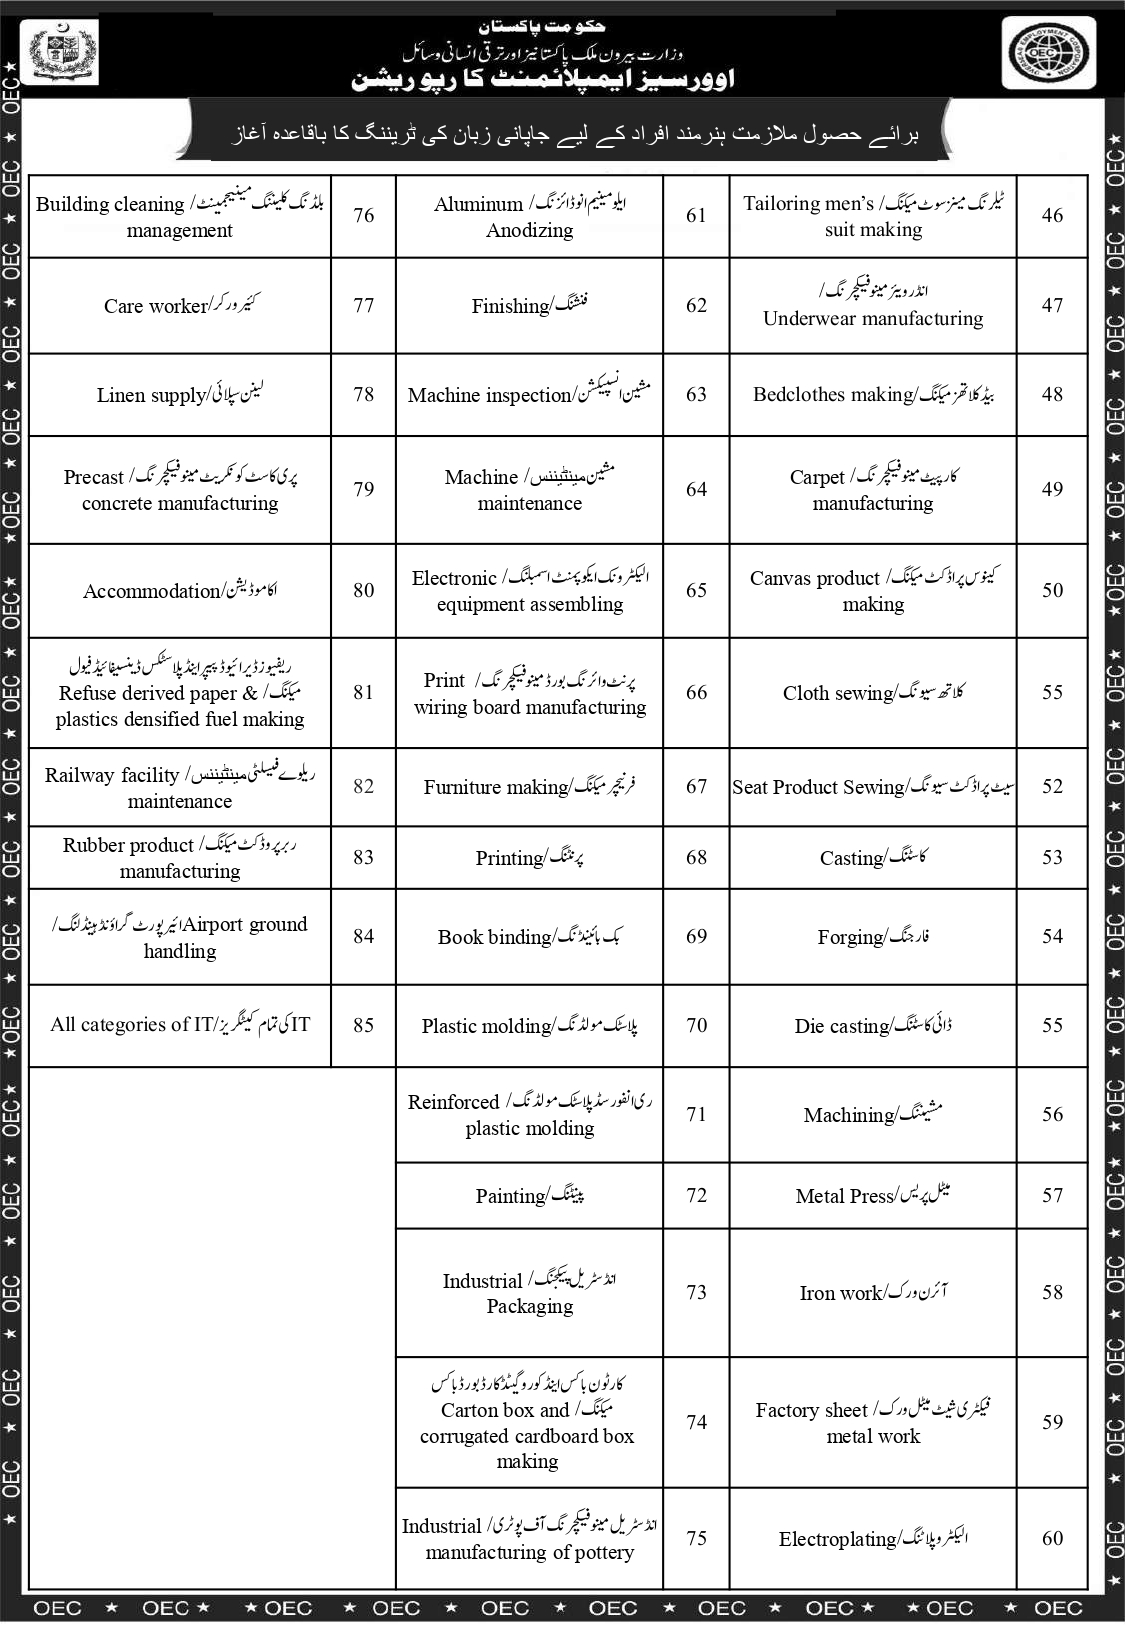 حکومت پاکستان
وزارت بیرون ملک پاکستانیز اور ترقی انسانی وسائل
اوورسیز ایمپلائمنٹ کارپوریشن
OVERSEAS EMPLOYMENT CORPORATION
OEC
برائے حصول ملازمت ہنرمند افراد کے لیے جاپانی زبان کی ٹریننگ کا باقاعدہ آغاز
46
ٹیلرنگ مینز سوٹ میکنگ/ Tailoring men’s
suit making
47
انڈرویئر مینوفیکچرنگ/
Underwear manufacturing
48
بیڈ کلاتھز میکنگ/Bedclothes making
49
کارپیٹ مینوفیکچرنگ/ Carpet
manufacturing
50
کینوس پراڈکٹ میکنگ/ Canvas product
making
55
کلاتھ سیونگ/Cloth sewing
52
سیٹ پراڈکٹ سیونگ/Seat Product Sewing
53
کاسٹنگ/Casting
54
فارجنگ/Forging
55
ڈائی کاسٹنگ/Die casting
56
مشیننگ/Machining
57
میٹل پریس/Metal Press
58
آئرن ورک/Iron work
59
فیکٹری شیٹ میٹل ورک/ Factory sheet
metal work
60
الیکٹروپلاٹنگ/Electroplating
61
ایلومینیم انوڈائزنگ/ Aluminum
Anodizing
62
فنشنگ/Finishing
63
مشین انسپیکشن/Machine inspection
64
مشین مینٹیننس/ Machine
maintenance
65
الیکٹرونک ایکوپمنٹ اسمبلنگ/ Electronic
equipment assembling
66
پرنٹ وائرنگ بورڈ مینوفیکچرنگ/ Print
wiring board manufacturing
67
فرنیچر میکنگ/Furniture making
68
پرنٹنگ/Printing
69
بک بائینڈنگ/Book binding
70
پلاسٹک مولڈنگ/Plastic molding
71
ری انفورسڈ پلاسٹک مولڈنگ/ Reinforced
plastic molding
72
پینٹنگ/Painting
73
انڈسٹریل پیکجنگ/ Industrial
Packaging
74
کارٹون باکس اینڈ کوروگیٹڈ کارڈ بورڈ باکس
میکنگ/ Carton box and
corrugated cardboard box
making
75
انڈسٹریل مینوفیکچرنگ آف پوٹری/ Industrial
manufacturing of pottery
76
بلڈنگ کلیننگ مینیجمینٹ/ Building cleaning
management
77
کئیر ورکر/Care worker
78
لینن سپلائی/Linen supply
79
پری کاسٹ کونکریٹ مینوفیکچرنگ/ Precast
concrete manufacturing
80
اکاموڈیشن/Accommodation
81
ریفیوز ڈیرائیوڈ پیپر اینڈ پلاسٹکس ڈینسیفائیڈ فیول
میکنگ/ Refuse derived paper &
plastics densified fuel making
82
ریلوے فیسلٹی مینٹیننس/ Railway facility
maintenance
83
ربر پروڈکٹ میکنگ/ Rubber product
manufacturing
84
ائیرپورٹ گراؤنڈ ہینڈلنگ/Airport ground
handling
85
IT کی تمام کیٹگریز/All categories of IT
OEC ★ OEC ★ ★ OEC ★ OEC ★ OEC ★ OEC ★ OEC ★ OEC ★ ★ OEC ★ OEC